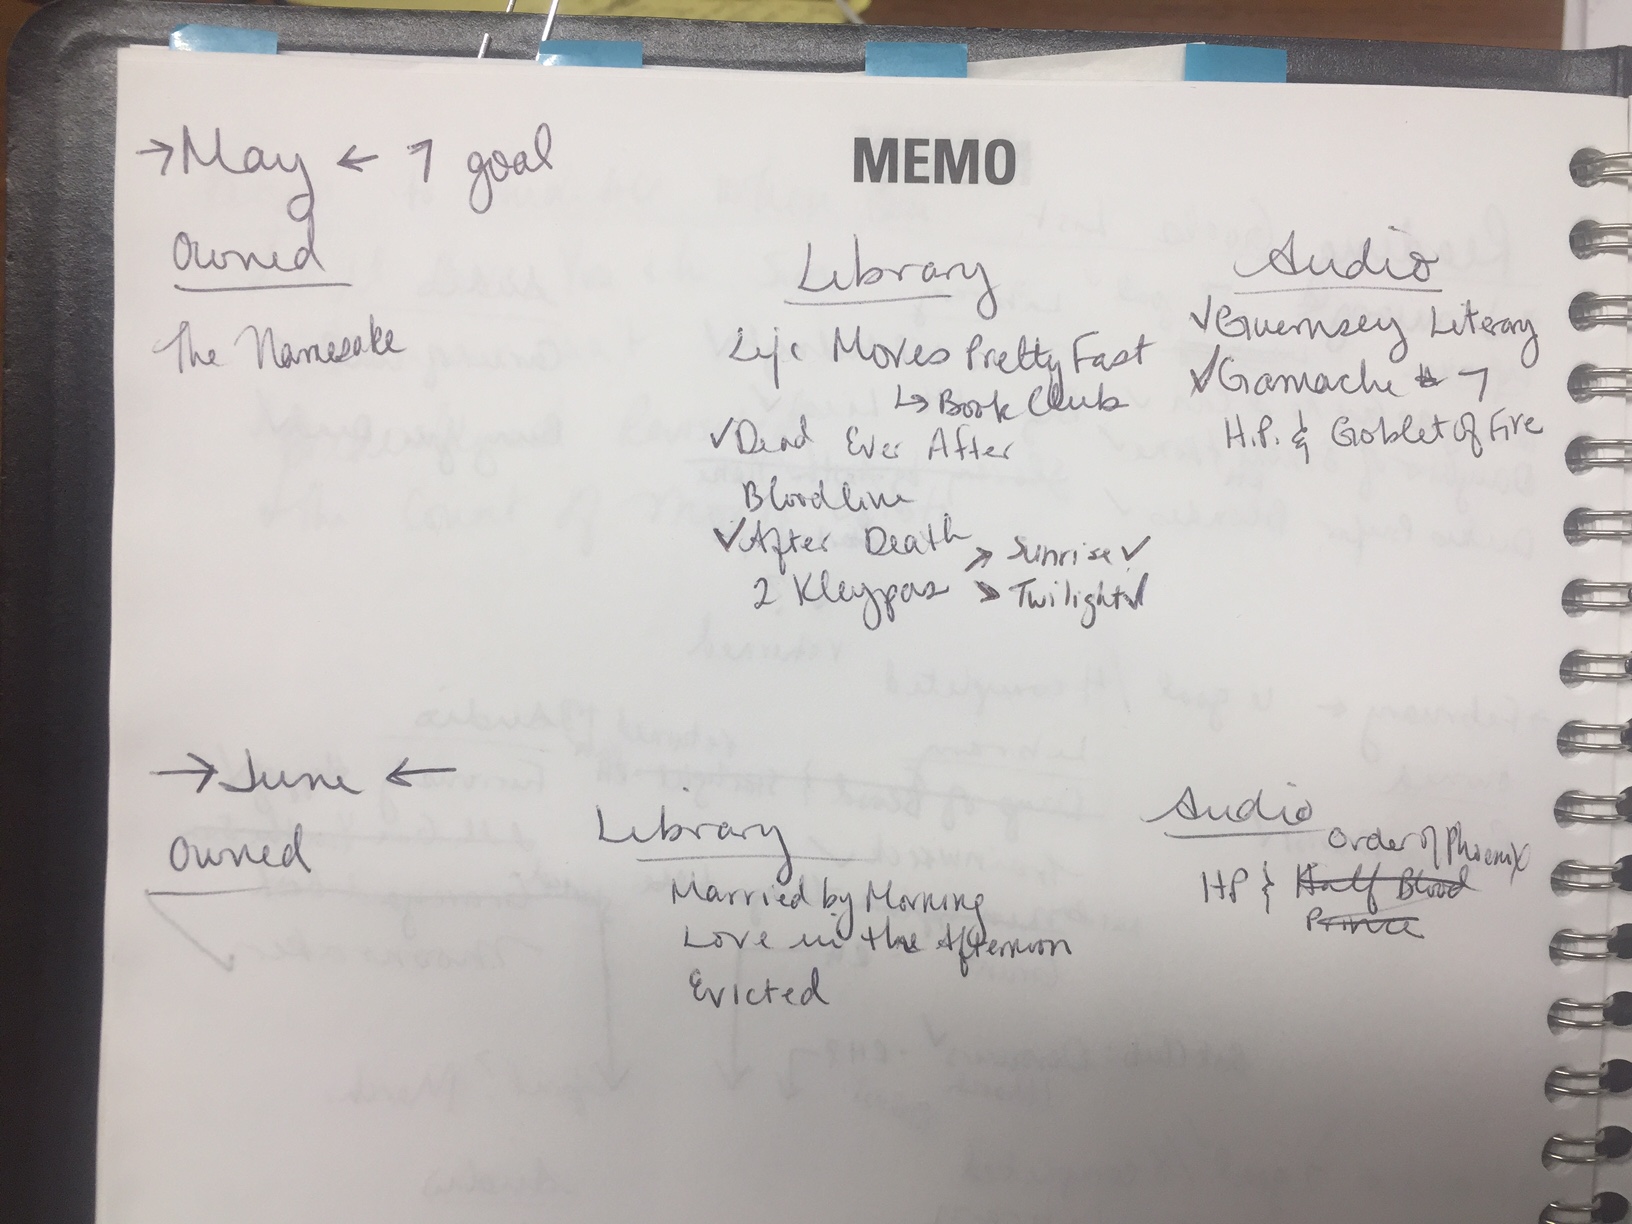 →May← 7 goal
MEMO
Owned
The Namesake
Library
Life Moves Pretty Fast
↳ Book Club
✓Dead Ever After
Bloodline
✓After Death
2 Kleypas → Sunrise ✓
→ Twilight ✓
Audio
✓Guernsey Literary
✓Gamache # 7
H.P. & Goblet of Fire
→June←
Owned
Library
Married by Morning
Love in the Afternoon
Evicted
Audio
Order of Phoenix
HP & Half Blood
Prince